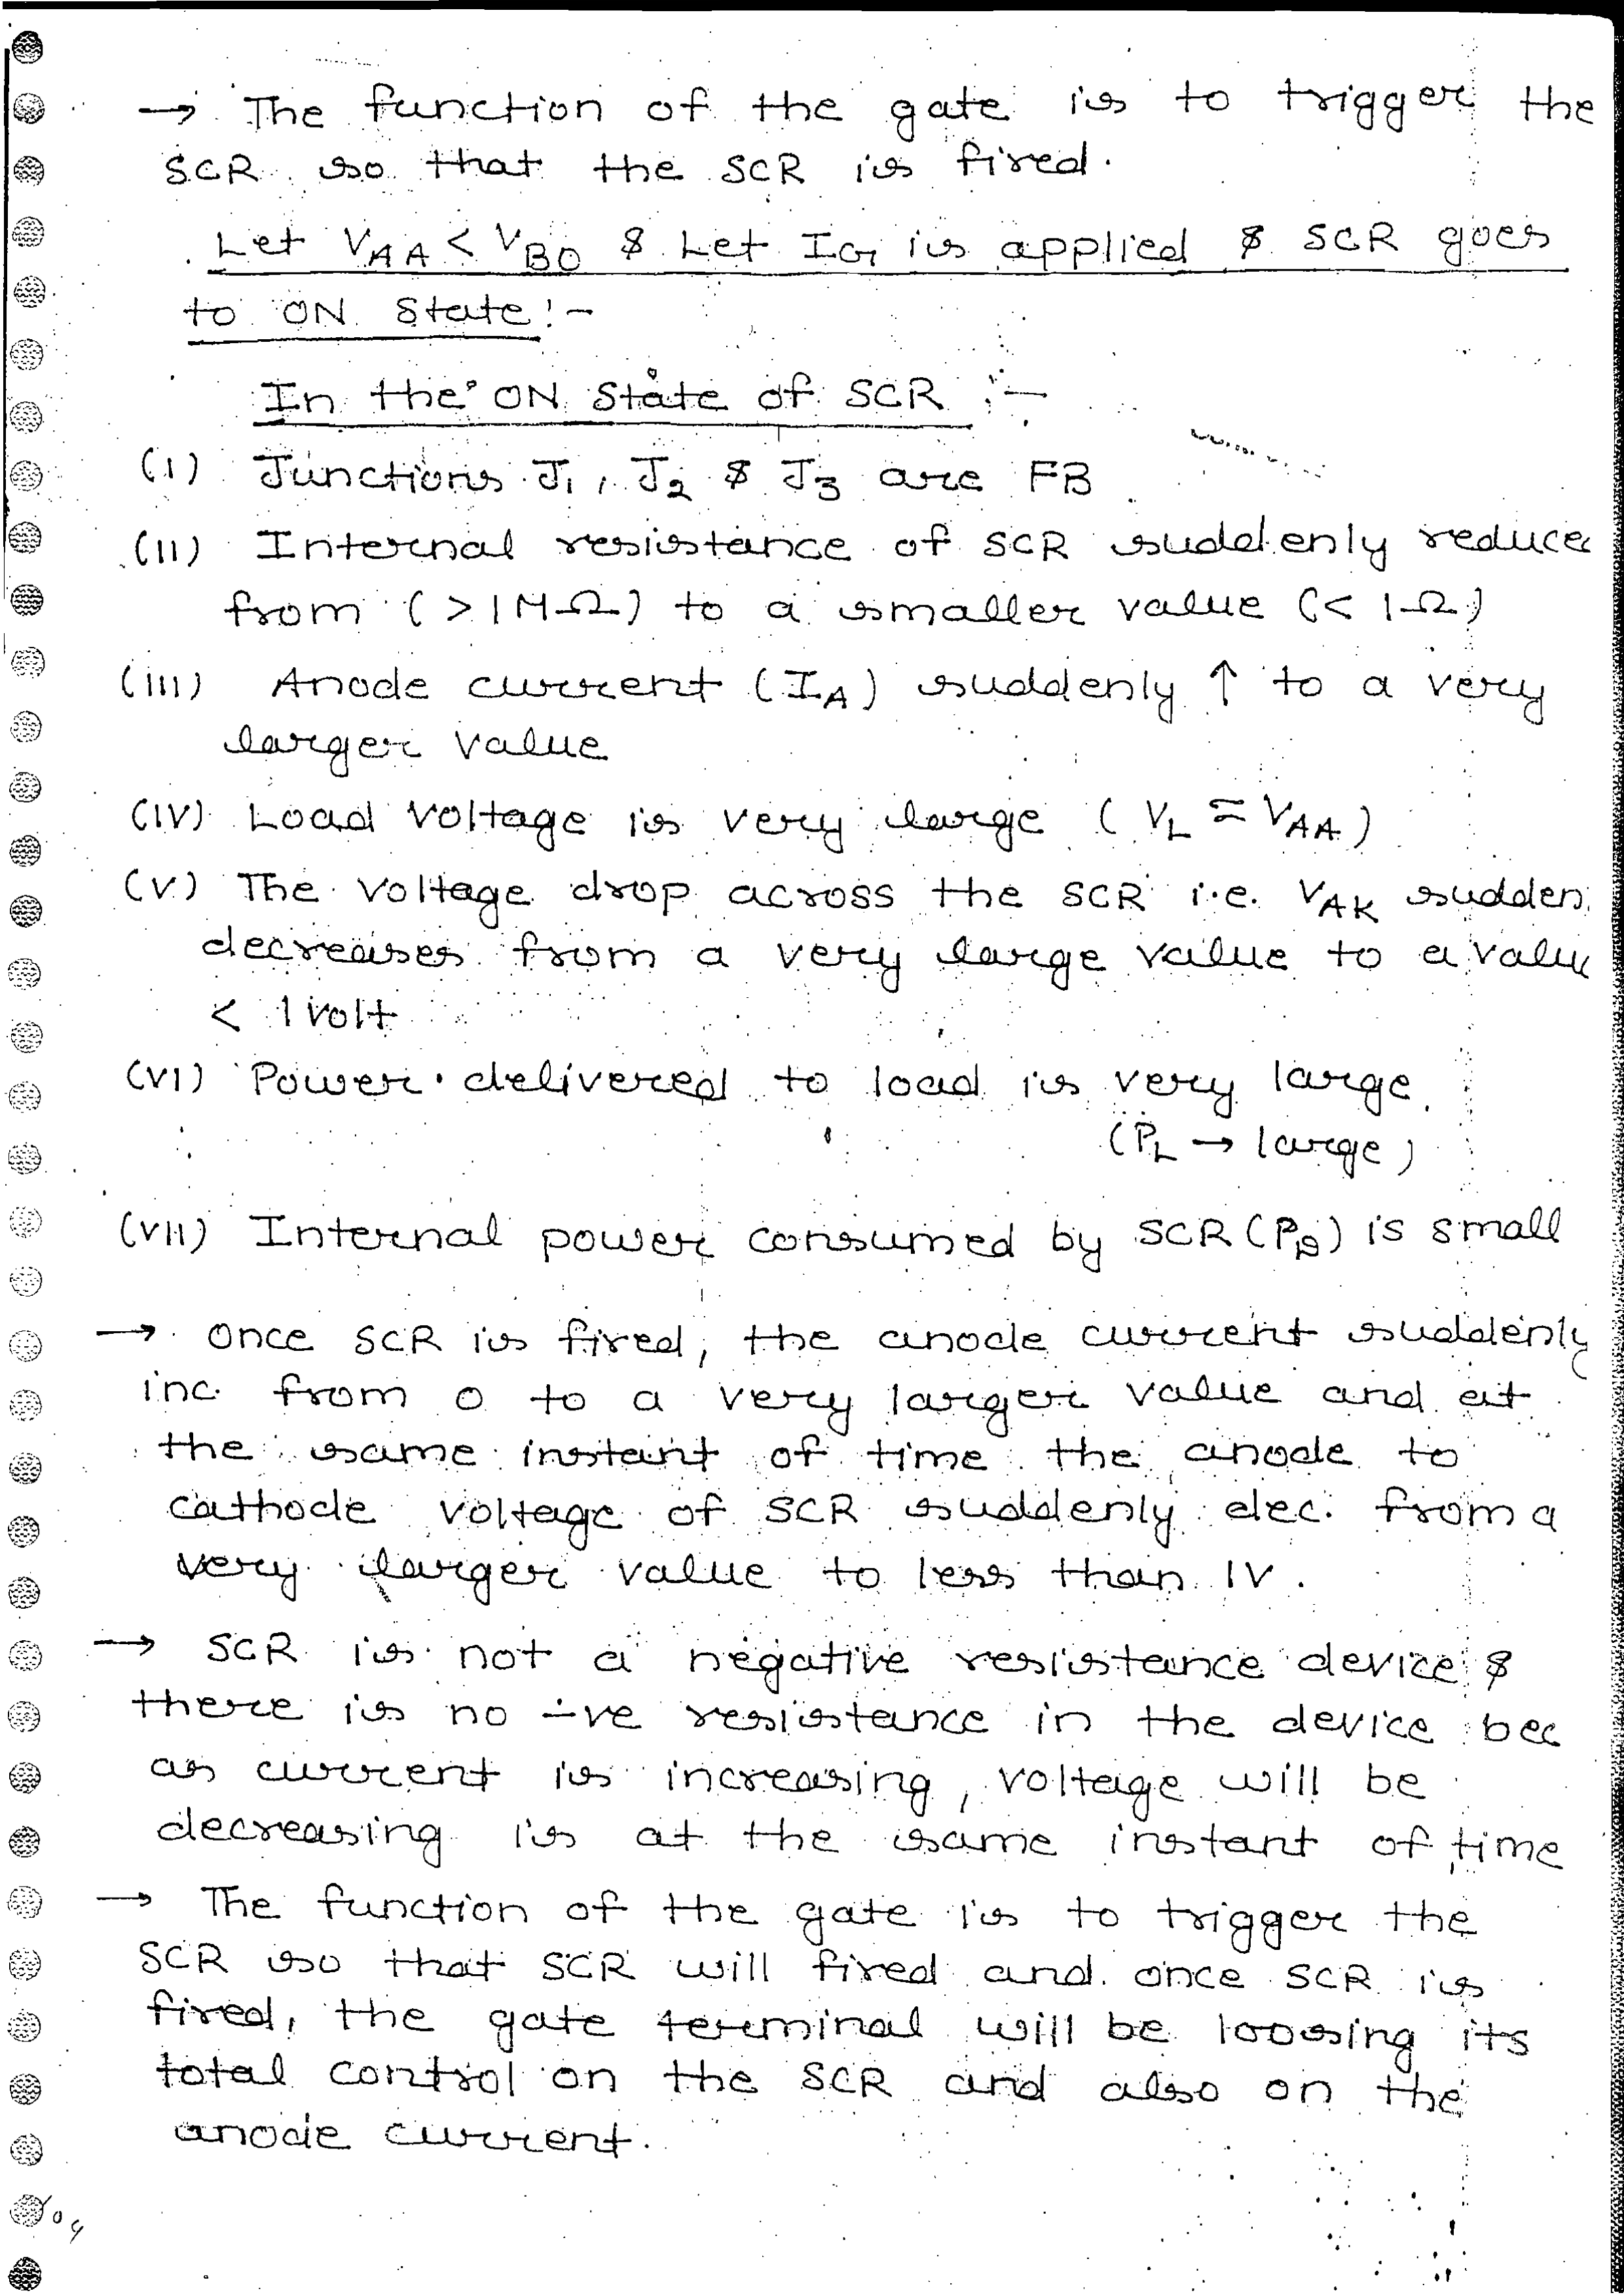 → The function of the gate is to trigger the
SCR so that the SCR is fired.
Let V_AA < V_BO & Let I_G is applied & SCR goes
to ON State:-
In the ON State of SCR :-
(i) Junctions J₁, J₂ & J₃ are FB
(ii) Internal resistance of SCR suddenly reduces
from (>1MΩ) to a smaller value (<1Ω)
(iii) Anode current (I_A) suddenly ↑ to a very
larger value
(iv) Load voltage is very large (V_L ≃ V_AA)
(v) The voltage drop across the SCR i.e. V_AK sudden
decreases from a very large value to a value
< 1 volt
(vi) Power delivered to load is very large
(P_L → large)
(vii) Internal power consumed by SCR (P_D) is small
→ Once SCR is fired, the anode current suddenly
inc. from 0 to a very larger value and at
the same instant of time the anode to
cathode voltage of SCR suddenly dec. from a
very larger value to less than 1V.
→ SCR is not a negative resistance device &
there is no -ve resistance in the device bec
as current is increasing, voltage will be
decreasing is at the same instant of time
→ The function of the gate is to trigger the
SCR so that SCR will fired and once SCR is
fired, the gate terminal will be loosing its
total control on the SCR and also on the
anode current.